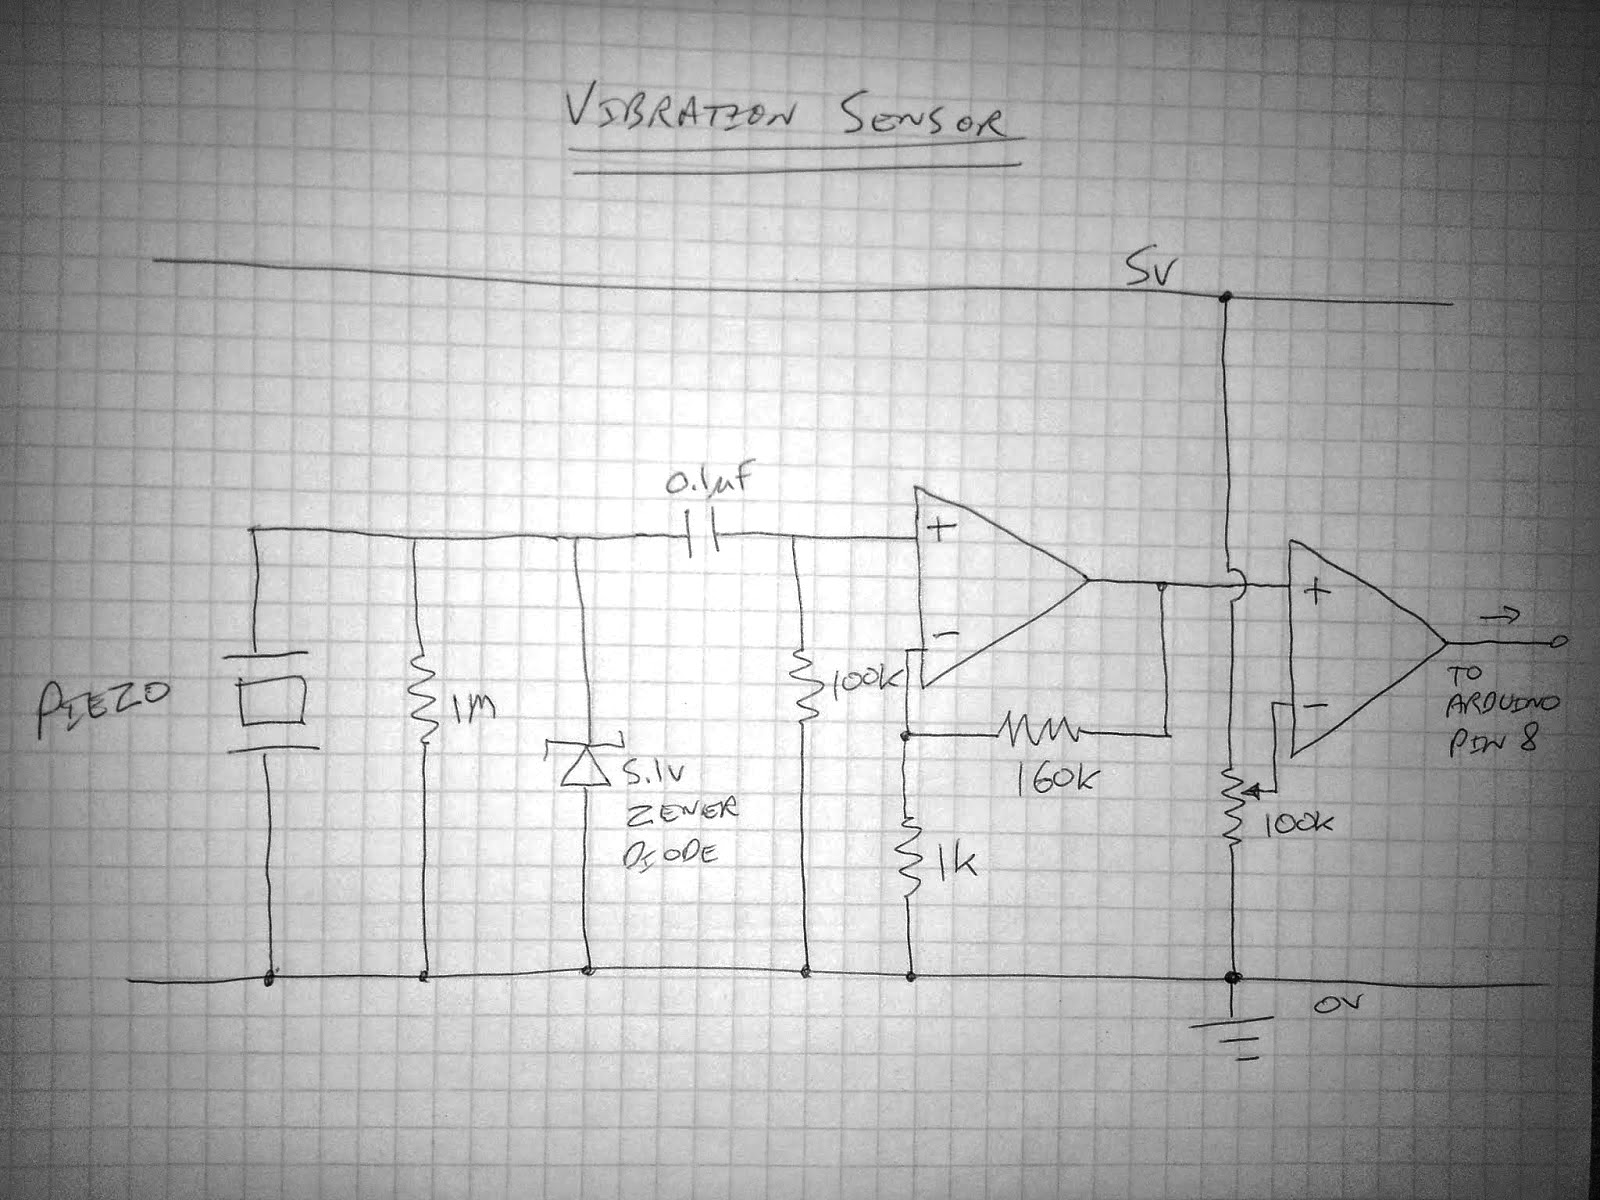 VIBRATION SENSOR
5V
0.1µF
+
-
100k
+
-
PIEZO
1M
5.1V
ZENER
DIODE
160k
1k
100k
TO
ARDUINO
PIN 8
0V